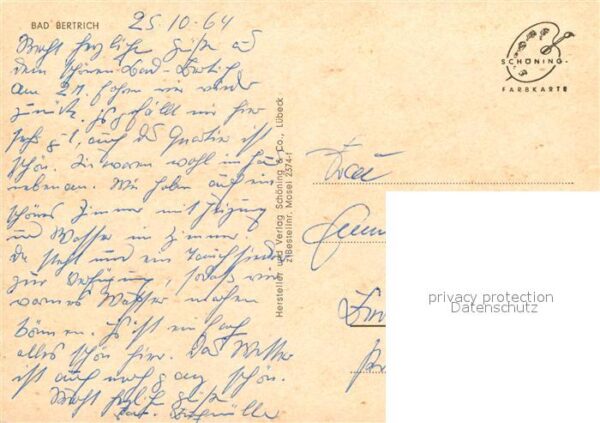 BAD BERTRICH
25.10.64
Recht herzliche Grüße aus
dem schönen Bad-Bertrich
Am 2.11. fahren wir wieder
zurück. Es gefällt uns hier
sehr gut, auch das Quartier ist
schön. Sie waren wohl im Haus
nebenan. Wir haben auch ein
schönes Zimmer mit Heizung
und Wasser im Zimmer.
Da steht uns ein Tauchsieder
zur Verfügung, sodaß wir
warmes Wasser machen
können. Es ist einfach
alles schön hier. Das Wetter
ist auch noch ganz schön.
Recht herzliche Grüße
SCHÖNING-
FARBKARTE
Hersteller und Verlag Schöning & Co., Lübeck
Bestellnr. Mosel 2374-1
Frau
privacy protection
Datenschutz